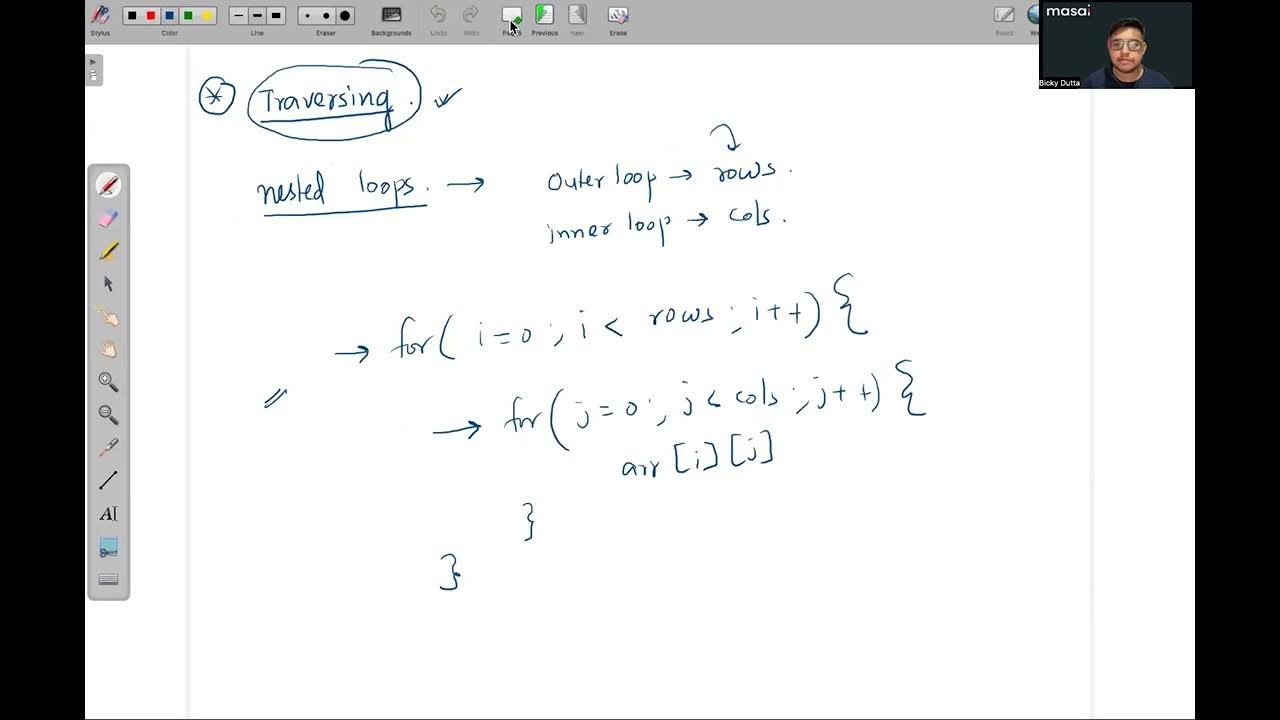 Stylus
Color
Line
Eraser
Backgrounds
Undo
Previous
Erase
Board
masai
Bicky Dutta
* Traversing .
nested loops. → Outer loop → rows .
inner loop → cols .
→ for( i=0 ; i < rows ; i++) {
→ for( j=0 ; j < cols ; j++) {
arr [i] [j]
}
}
AI